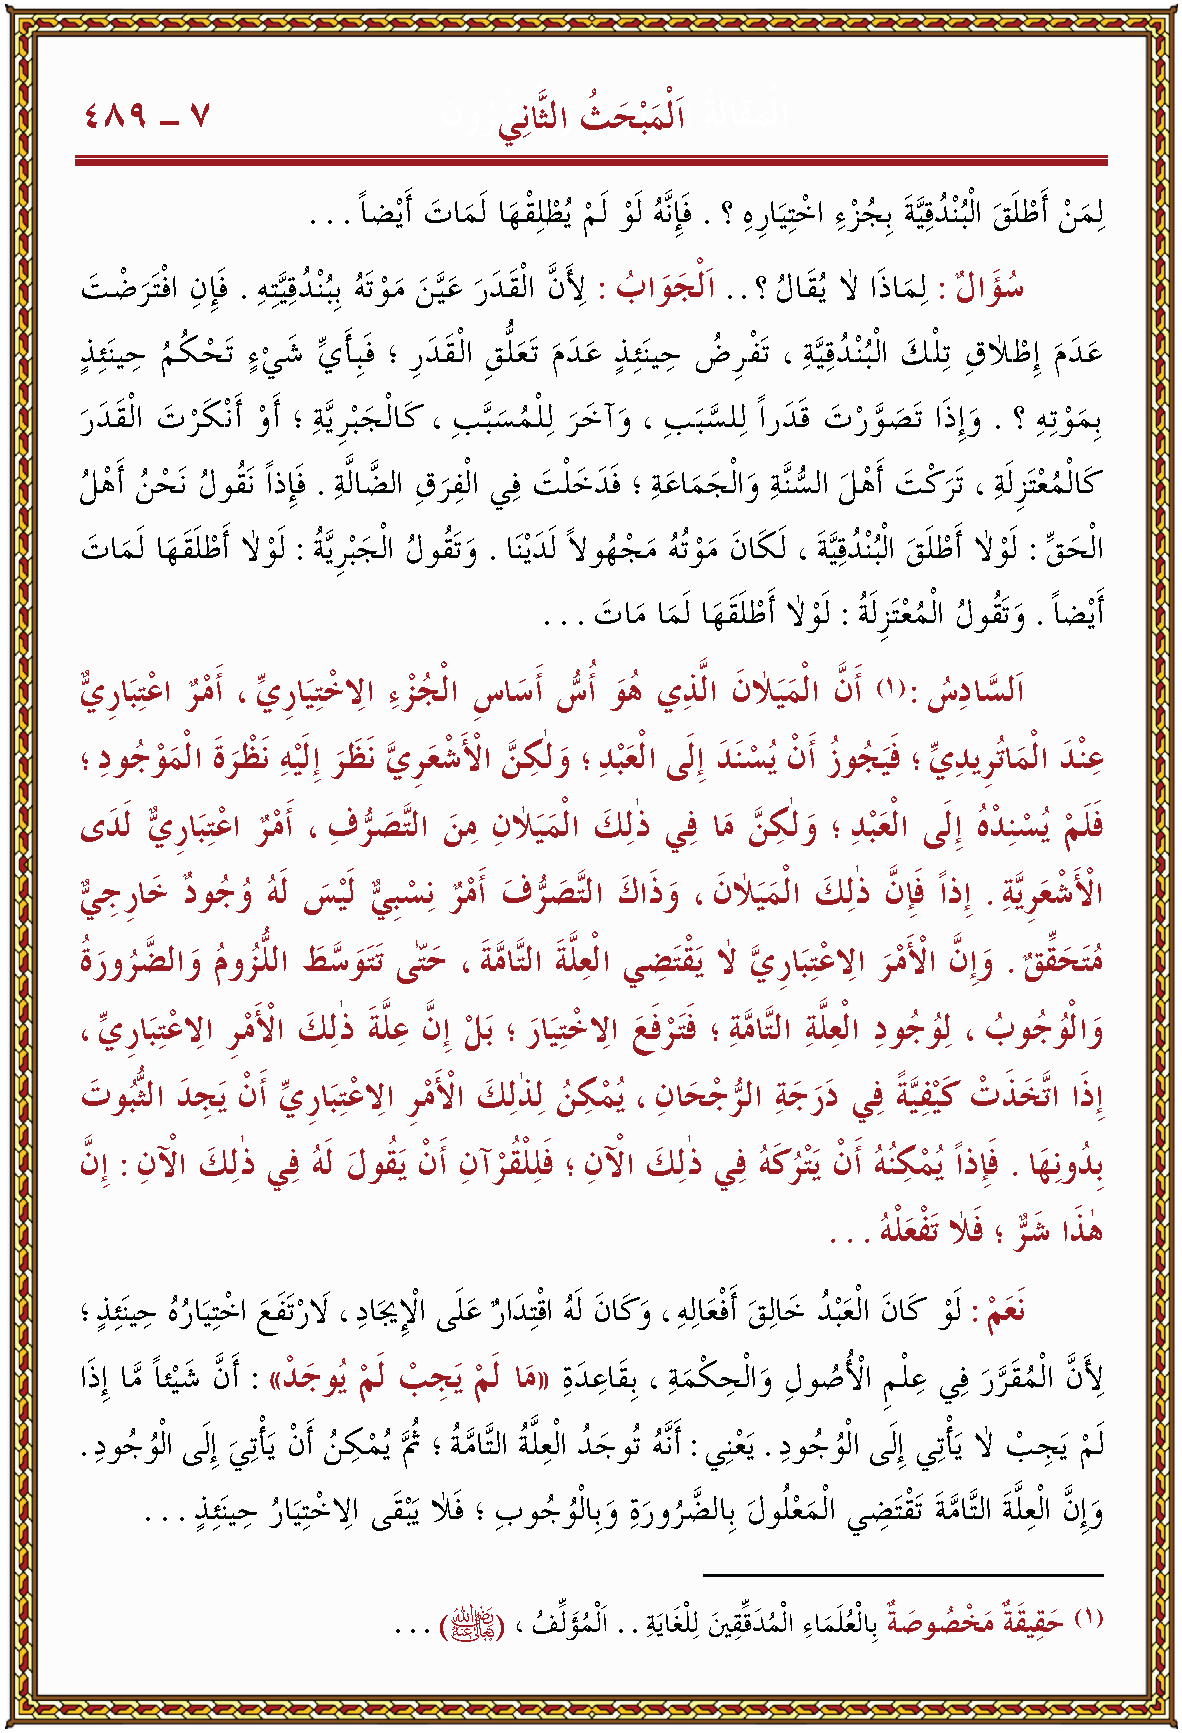 اَلْمَبْحَثُ الثَّانِي ٧ ــ ٤٨٩
لِمَنْ أَطْلَقَ الْبُنْدُقِيَّةَ بِجُزْءِ اخْتِيَارِهِ ؟ . فَإِنَّهُ لَوْ لَمْ يُطْلِقْهَا لَمَاتَ أَيْضاً . . .
سُؤَالٌ : لِمَاذَا لَا يُقَالُ ؟ . . اَلْجَوَابُ : لِأَنَّ الْقَدَرَ عَيَّنَ مَوْتَهُ بِبُنْدُقِيَّتِهِ . فَإِنِ افْتَرَضْتَ
عَدَمَ إِطْلَاقِ تِلْكَ الْبُنْدُقِيَّةِ ، تَفْرِضُ حِينَئِذٍ عَدَمَ تَعَلُّقِ الْقَدَرِ ؛ فَبِأَيِّ شَيْءٍ تَحْكُمُ حِينَئِذٍ
بِمَوْتِهِ ؟ . وَإِذَا تَصَوَّرْتَ قَدَراً لِلسَّبَبِ ، وَآخَرَ لِلْمُسَبَّبِ ، كَالْجَبْرِيَّةِ ؛ أَوْ أَنْكَرْتَ الْقَدَرَ
كَالْمُعْتَزِلَةِ ، تَرَكْتَ أَهْلَ السُّنَّةِ وَالْجَمَاعَةِ ؛ فَدَخَلْتَ فِي الْفِرَقِ الضَّالَّةِ . فَإِذاً نَقُولُ نَحْنُ أَهْلُ
الْحَقِّ : لَوْلَا أَطْلَقَ الْبُنْدُقِيَّةَ ، لَكَانَ مَوْتُهُ مَجْهُولاً لَدَيْنَا . وَتَقُولُ الْجَبْرِيَّةُ : لَوْلَا أَطْلَقَهَا لَمَاتَ
أَيْضاً . وَتَقُولُ الْمُعْتَزِلَةُ : لَوْلَا أَطْلَقَهَا لَمَا مَاتَ . . .
اَلسَّادِسُ : (١) أَنَّ الْمَيَلَانَ الَّذِي هُوَ أُسُّ أَسَاسِ الْجُزْءِ الِاخْتِيَارِيِّ ، أَمْرٌ اعْتِبَارِيٌّ
عِنْدَ الْمَاتُرِيدِيِّ ؛ فَيَجُوزُ أَنْ يُسْنَدَ إِلَى الْعَبْدِ ؛ وَلٰكِنَّ الْأَشْعَرِيَّ نَظَرَ إِلَيْهِ نَظْرَةَ الْمَوْجُودِ ؛
فَلَمْ يُسْنِدْهُ إِلَى الْعَبْدِ ؛ وَلٰكِنَّ مَا فِي ذٰلِكَ الْمَيَلَانِ مِنَ التَّصَرُّفِ ، أَمْرٌ اعْتِبَارِيٌّ لَدَى
الْأَشْعَرِيَّةِ . إِذاً فَإِنَّ ذٰلِكَ الْمَيَلَانَ ، وَذَاكَ التَّصَرُّفَ أَمْرٌ نِسْبِيٌّ لَيْسَ لَهُ وُجُودٌ خَارِجِيٌّ
مُتَحَقِّقٌ . وَإِنَّ الْأَمْرَ الِاعْتِبَارِيَّ لَا يَقْتَضِي الْعِلَّةَ التَّامَّةَ ، حَتّٰى تَتَوَسَّطَ اللُّزُومُ وَالضَّرُورَةُ
وَالْوُجُوبُ ، لِوُجُودِ الْعِلَّةِ التَّامَّةِ ؛ فَتَرْفَعَ الِاخْتِيَارَ ؛ بَلْ إِنَّ عِلَّةَ ذٰلِكَ الْأَمْرِ الِاعْتِبَارِيِّ ،
إِذَا اتَّخَذَتْ كَيْفِيَّةً فِي دَرَجَةِ الرُّجْحَانِ ، يُمْكِنُ لِذٰلِكَ الْأَمْرِ الِاعْتِبَارِيِّ أَنْ يَجِدَ الثُّبُوتَ
بِدُونِهَا . فَإِذاً يُمْكِنُهُ أَنْ يَتْرُكَهُ فِي ذٰلِكَ الْآنِ ؛ فَلِلْقُرْآنِ أَنْ يَقُولَ لَهُ فِي ذٰلِكَ الْآنِ : إِنَّ
هٰذَا شَرٌّ ؛ فَلَا تَفْعَلْهُ . . .
نَعَمْ : لَوْ كَانَ الْعَبْدُ خَالِقَ أَفْعَالِهِ ، وَكَانَ لَهُ اقْتِدَارٌ عَلَى الْإِيجَادِ ، لَارْتَفَعَ اخْتِيَارُهُ حِينَئِذٍ ؛
لِأَنَّ الْمُقَرَّرَ فِي عِلْمِ الْأُصُولِ وَالْحِكْمَةِ ، بِقَاعِدَةِ «مَا لَمْ يَجِبْ لَمْ يُوجَدْ» : أَنَّ شَيْئاً مَّا إِذَا
لَمْ يَجِبْ لَا يَأْتِي إِلَى الْوُجُودِ . يَعْنِي : أَنَّهُ تُوجَدُ الْعِلَّةُ التَّامَّةُ ؛ ثُمَّ يُمْكِنُ أَنْ يَأْتِيَ إِلَى الْوُجُودِ .
وَإِنَّ الْعِلَّةَ التَّامَّةَ تَقْتَضِي الْمَعْلُولَ بِالضَّرُورَةِ وَبِالْوُجُوبِ ؛ فَلَا يَبْقَى الِاخْتِيَارُ حِينَئِذٍ . . .
(١) حَقِيقَةٌ مَخْصُوصَةٌ بِالْعُلَمَاءِ الْمُدَقِّقِينَ لِلْغَايَةِ . . اَلْمُؤَلِّفُ ، (رضي الله عنه) . . .